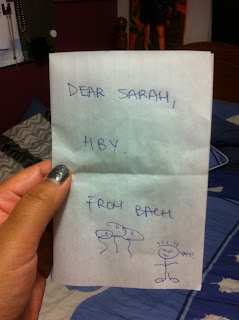 DEAR SARAH,
HBY.
FROM BACH.
YAY!